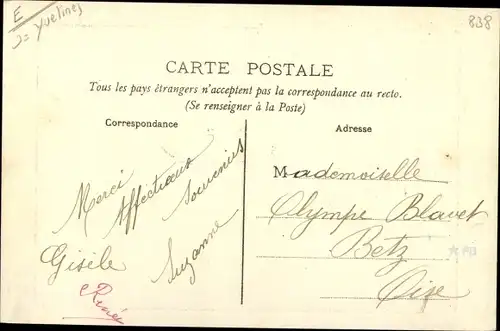 E
J= Yvelines
838
CARTE POSTALE
Tous les pays étrangers n'acceptent pas la correspondance au recto.
(Se renseigner à la Poste)
Correspondance
Adresse
Merci
Affectueux
Souvenirs
Gisèle
Suzanne
Renée
Mademoiselle
Olympe Blavet
Betz
Oise